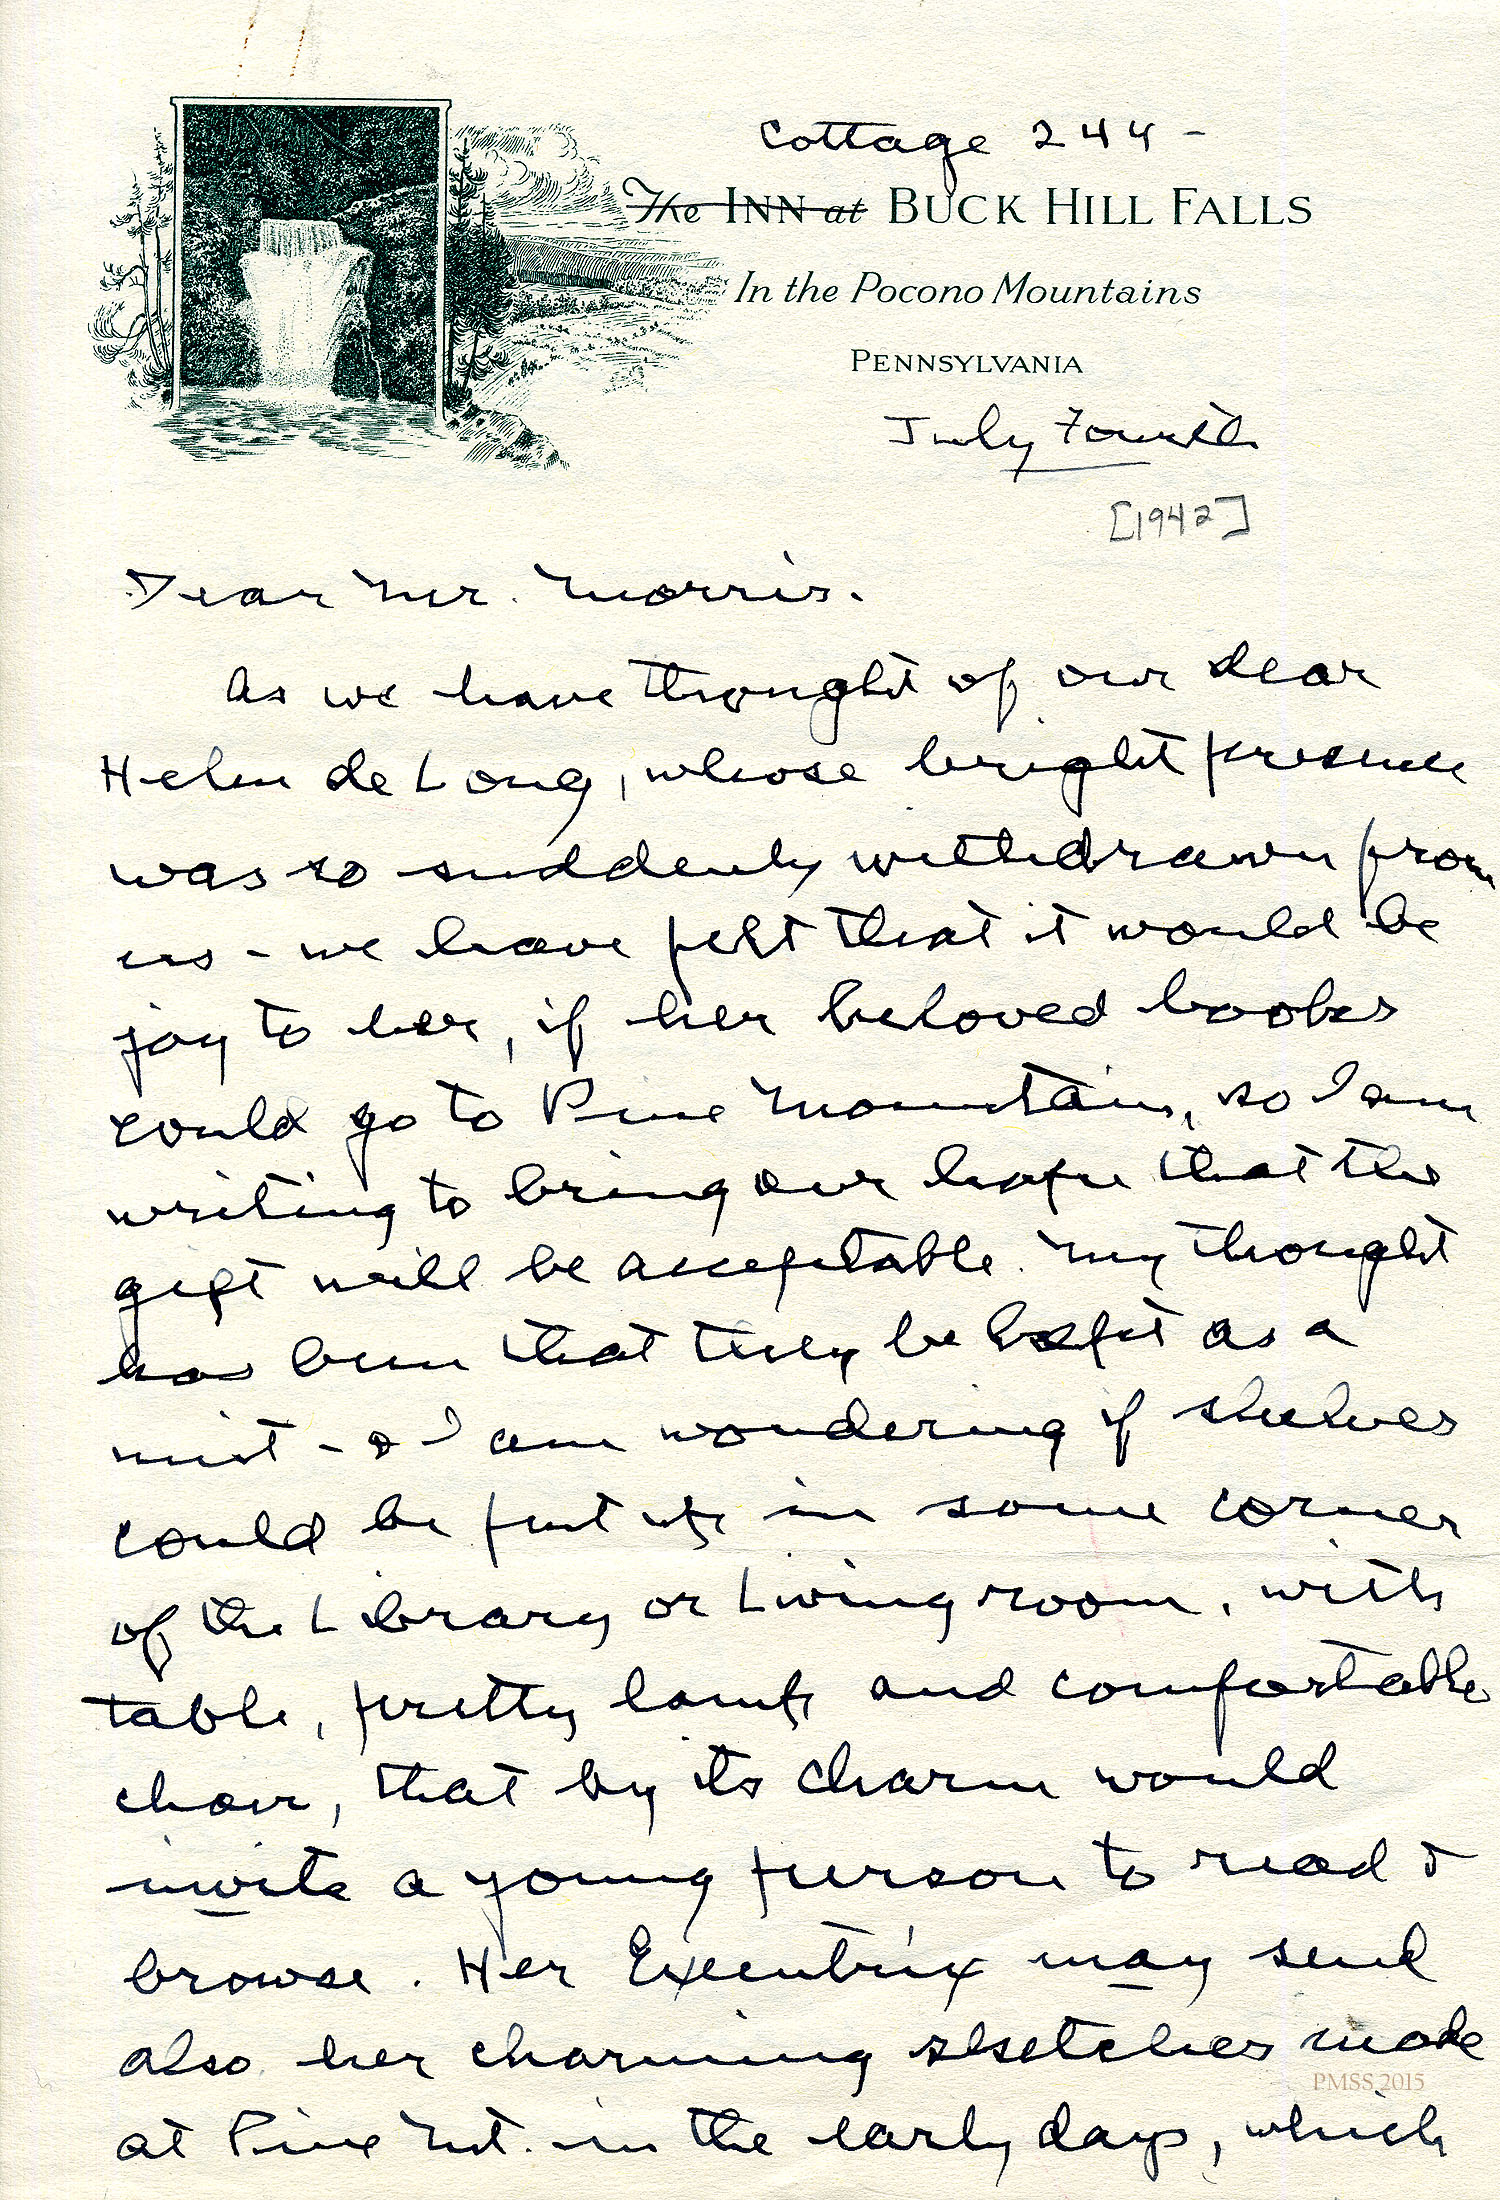 Cottage 244 -
The INN at BUCK HILL FALLS
In the Pocono Mountains
PENNSYLVANIA
July Fourth
[1942]
Dear Mr. Morris.
As we have thought of our dear
Helen de Long, whose bright presence
was so suddenly withdrawn from
us - we have felt that it would be
joy to her, if her beloved books
could go to Pine Mountain, so I am
writing to bring our hope that the
gift will be acceptable. My thought
has been that they be kept as a
unit - & I am wondering if shelves
could be put up in some corner
of the Library or Living room, with
table, pretty lamp and comfortable
chair, that by its charm would
invite a young person to read &
browse. Her Executrix may send
also her charming sketches made
at Pine Mt. in the early days, which
PMSS 2015